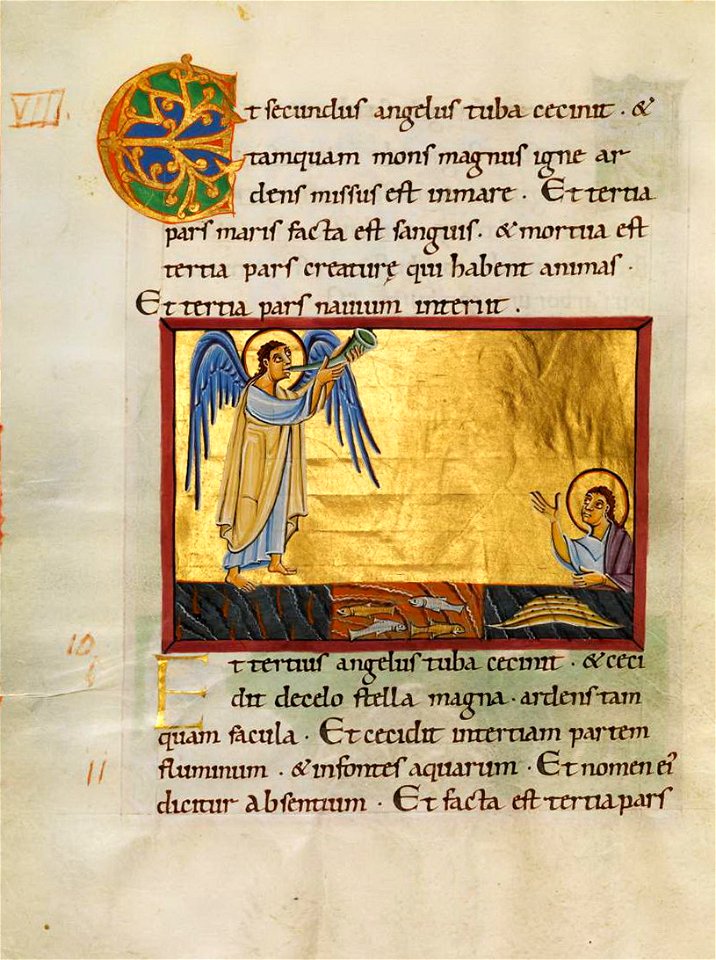 VIII.
Et secundus angelus tuba cecinit · &
tamquam mons magnus igne ar
dens missus est inmare · Et tertia
pars maris facta est sanguis · & mortua est
tertia pars creaturę qui habent animas ·
Et tertia pars navium interiit ·
Et tertius angelus tuba cecinit · & ceci
10
dit decelo stella magna · ardens tam
quam facula · Et cecidit intertiam partem
11
fluminum · & infontes aquarum · Et nomen ei
dicitur absentium · Et facta est tertia pars